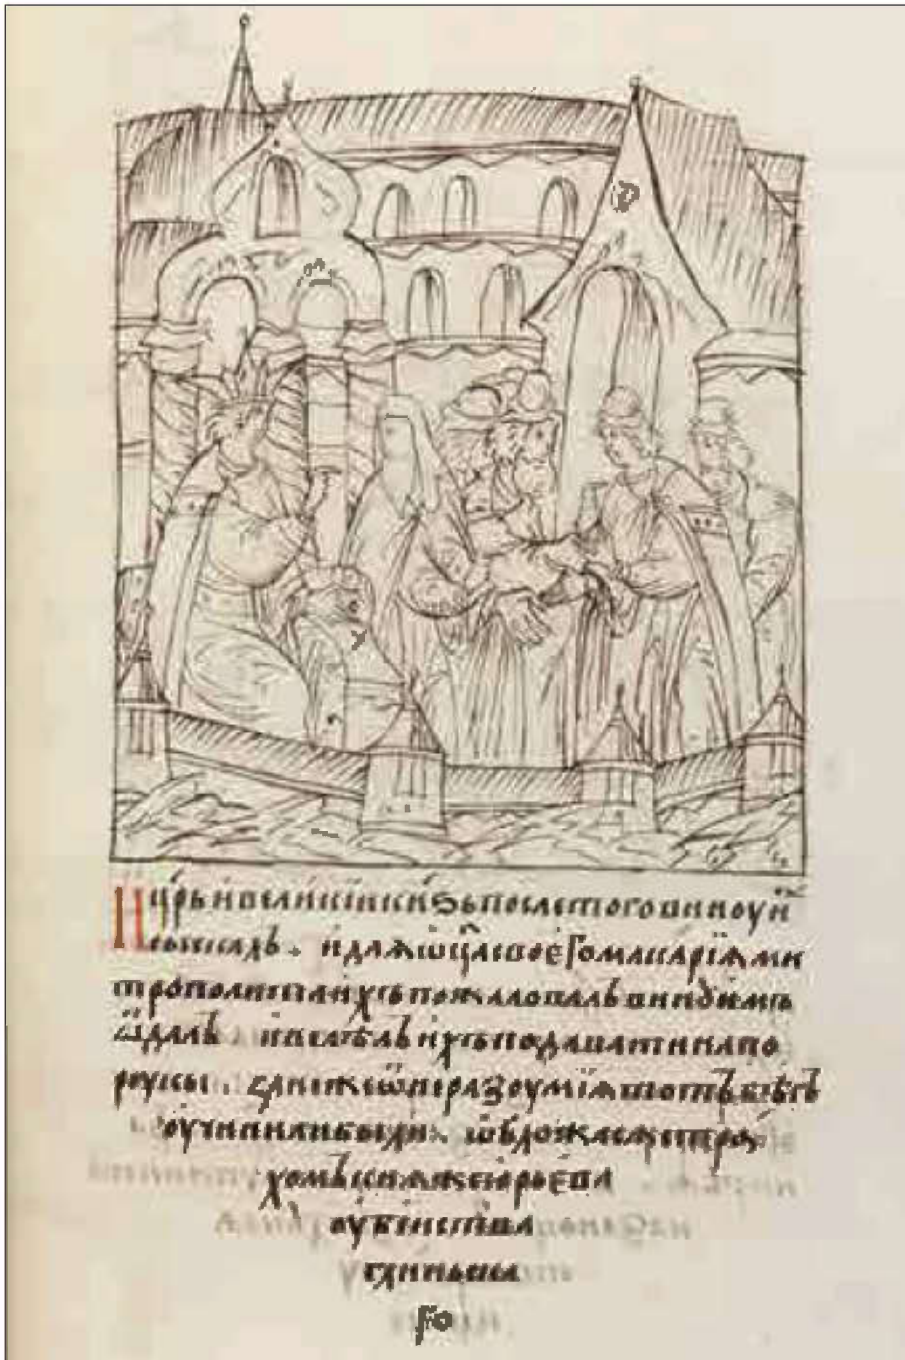 И црь и великіи кнѕь после того вину иⷯ
сыскалъ. и для ѿца своего макарїѧ ми
трополита ихъ пожаловалъ вины имъ
ѿдалъ и велѣлъ ихъ подавати на по
рукы. занеже ѿ неразоумїѧ тотъ бѣгъ
оучинили были. ѡбложасѧ стра
хомъ княже юрьева
оубїиства
глиньска
го